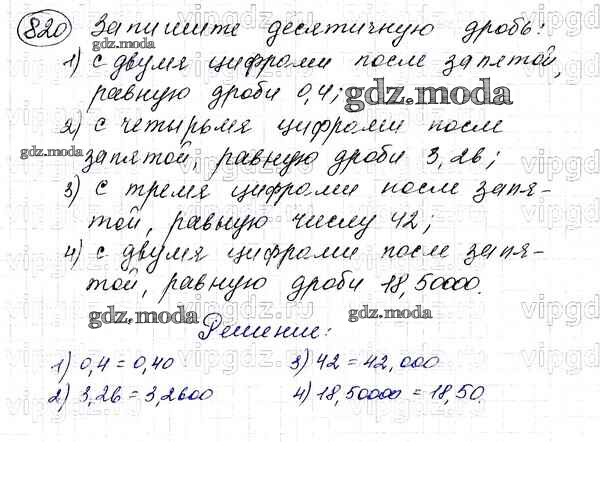 820 Запишите десятичную дробь:
1) с двумя цифрами после запятой,
равную дроби 0,4;
2) с четырьмя цифрами после
запятой, равную дроби 3,26;
3) с тремя цифрами после запя-
той, равную числу 42;
4) с двумя цифрами после запя-
той, равную дроби 18,50000.
Решение:
1) 0,4 = 0,40 3) 42 = 42,000
2) 3,26 = 3,2600 4) 18,50000 = 18,50.
gdz.moda
gdz.moda
gdz.moda
gdz.moda
gdz.moda
vipgdz.ru